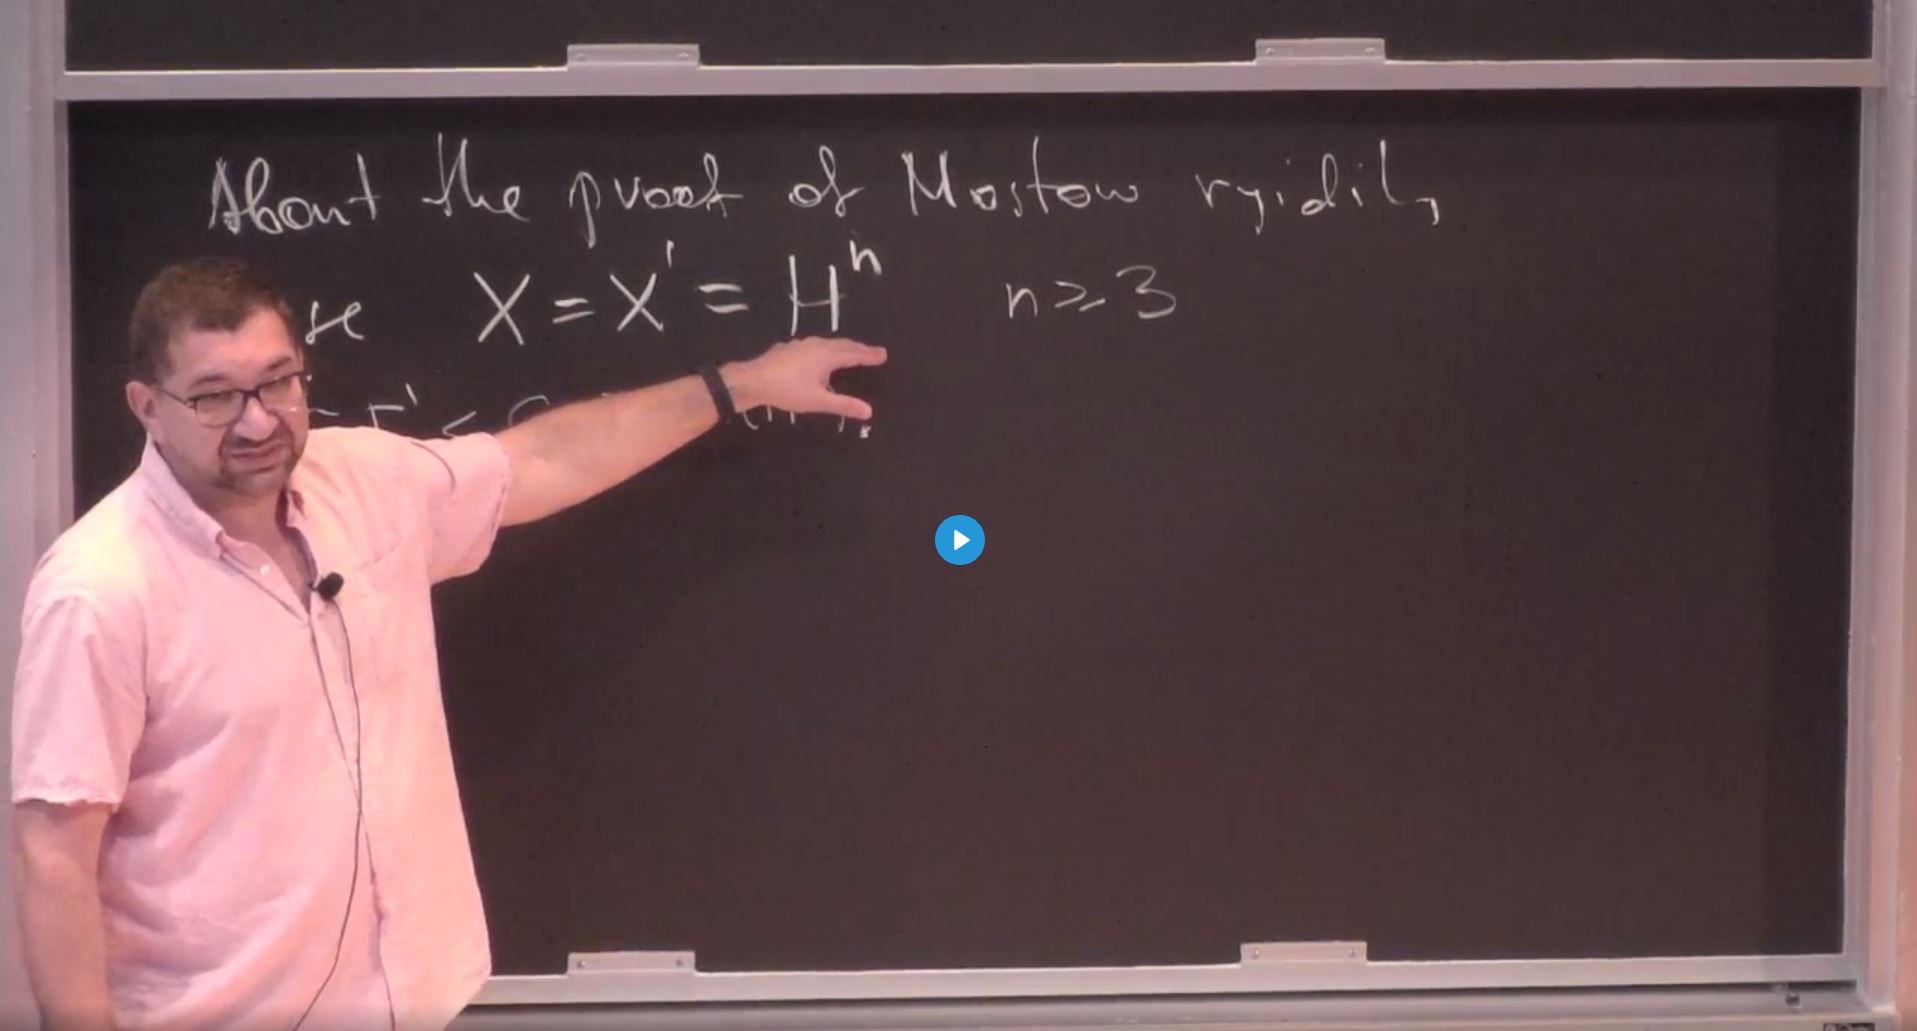 About the proof of Mostow rigidity
X = X' = Hⁿ n ≥ 3
Γ' <